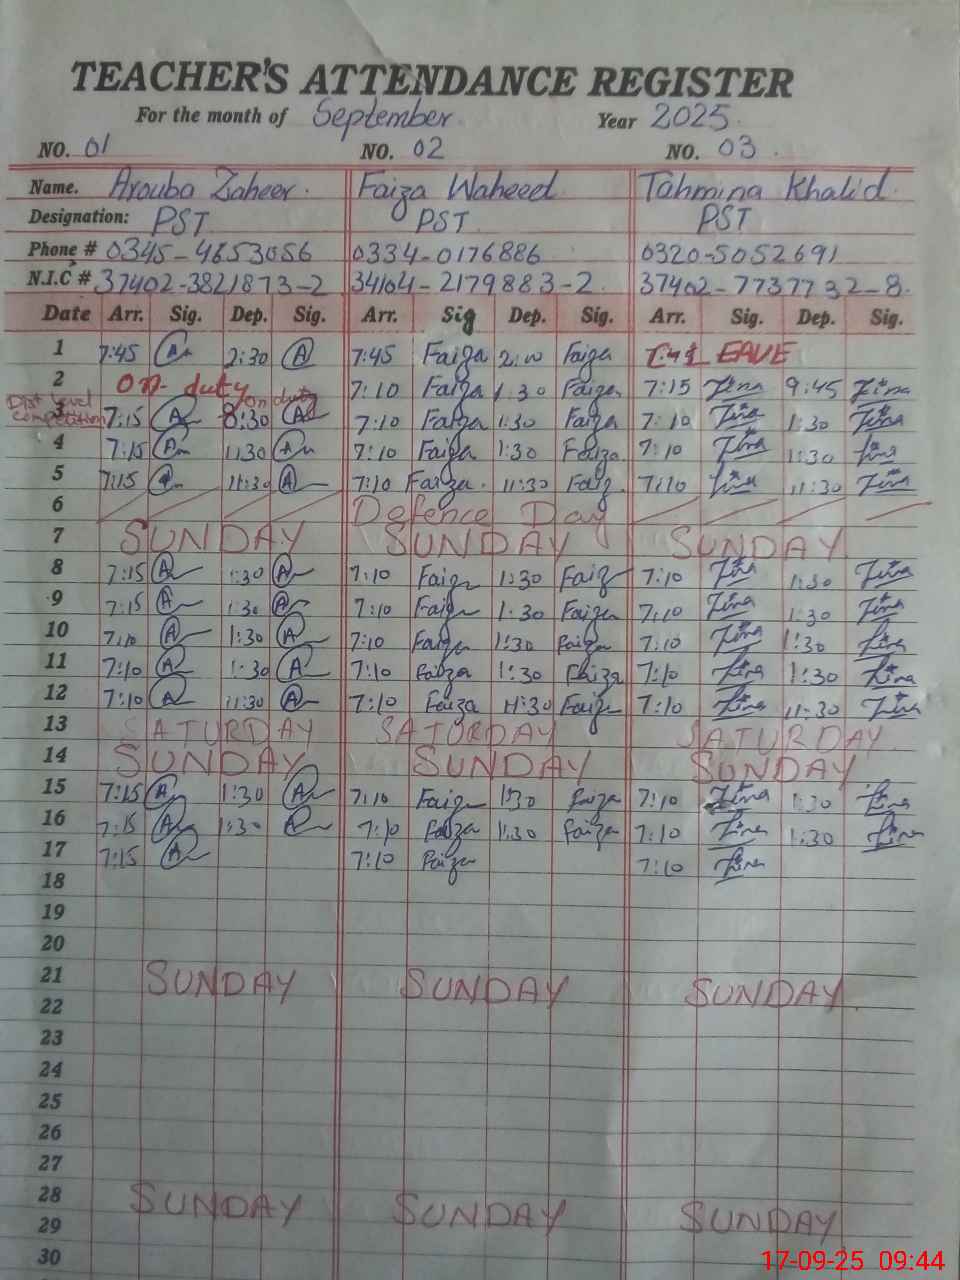 TEACHER'S ATTENDANCE REGISTER
For the month of September. Year 2025.
NO. 01 NO. 02 NO. 03.
Name. Arouba Zaheer. Faiza Waheed Tahmina Khalid.
Designation: PST PST PST
Phone # 0345-4853056 0334-0176886 0320-5052691
N.I.C # 37402-3821873-2 34104-2179883-2. 37402-7737732-8.
Date Arr. Sig. Dep. Sig. Arr. Sig Dep. Sig. Arr. Sig. Dep. Sig.
1 7:45 A 2:30 A 7:45 Faiza 2:00 Faiza LEAVE
2 On-duty 7:10 Faiza 1:30 Faiza 7:15 9:45
Dist level competition on duty
3 7:15 A 8:30 A 7:10 Faiza 1:30 Faiza 7:10 1:30
4 7:15 A 1:30 A 7:10 Faiza 1:30 Faiza 7:10 1:30
5 7:15 A 11:30 A 7:10 Faiza. 11:30 Faiz 7:10 11:30
6 Defence Day
7 SUNDAY SUNDAY SUNDAY
8 7:15 A 1:30 A 7:10 Faiza 1:30 Faiz 7:10 1:30
9 7:15 A 1:30 A 7:10 Faiza 1:30 Faiza 7:10 1:30
10 7:10 A 1:30 A 7:10 Faiza 1:30 Faiza 7:10 1:30
11 7:10 A 1:30 A 7:10 Faiza 1:30 Faiza 7:10 1:30
12 7:10 A 11:30 A 7:10 Faiza 11:30 Faiza 7:10 11:30
13 SATURDAY SATURDAY SATURDAY
14 SUNDAY SUNDAY SUNDAY
15 7:15 A 1:30 A 7:10 Faiza 1:30 Faiza 7:10 1:30
16 7:15 A 1:30 A 7:10 Faiza 1:30 Faiza 7:10 1:30
17 7:15 A 7:10 Faiza 7:10
18
19
20
21 SUNDAY SUNDAY SUNDAY
22
23
24
25
26
27
28 SUNDAY SUNDAY SUNDAY
29
30
17-09-25 09:44